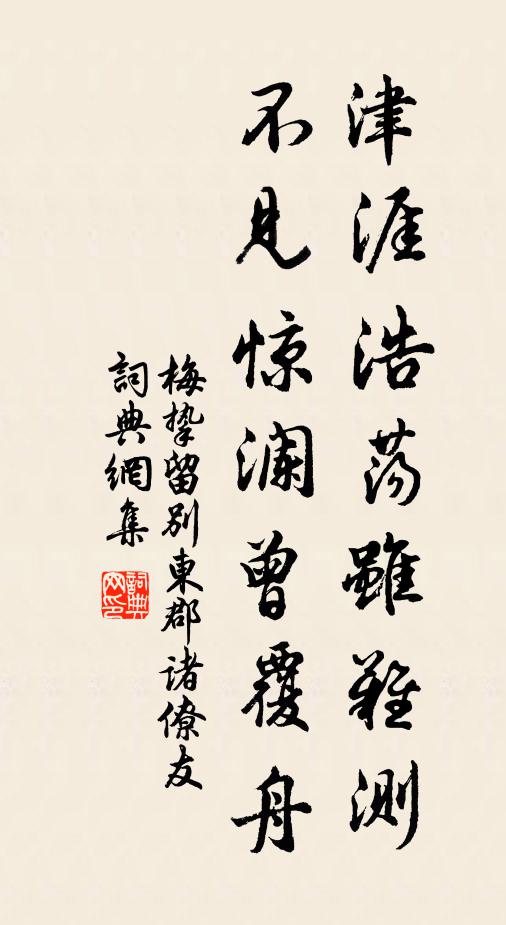 津涯浩荡雖難測
不见惊澜曾覆舟
梅挚留别東郡诸僚友
詞典網集
詞典网印